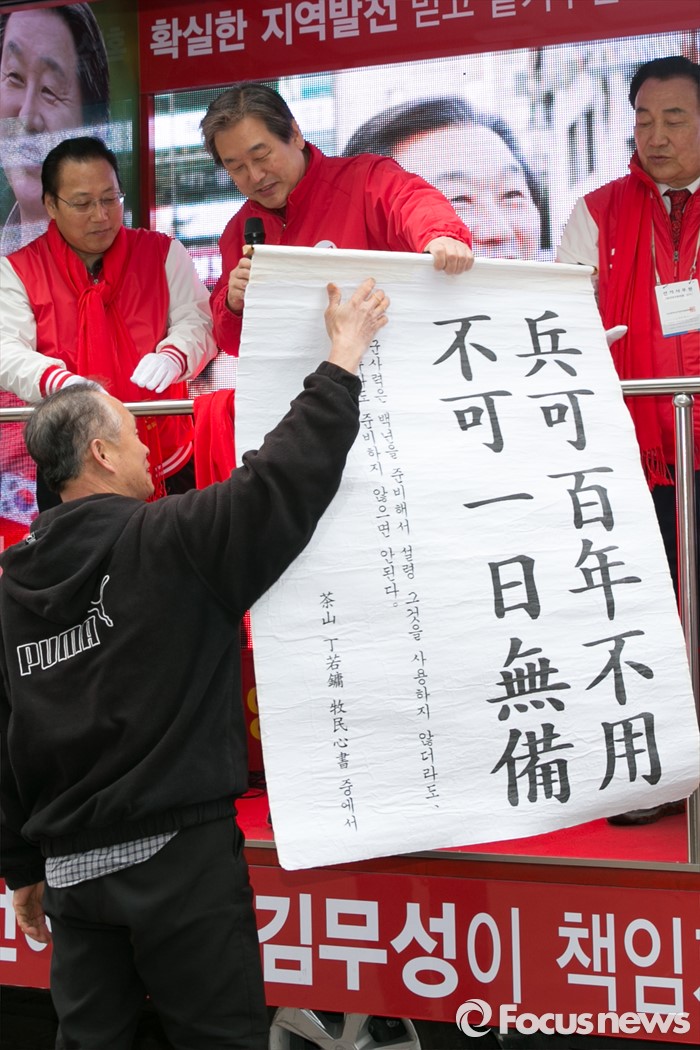 확실한 지역발전 믿고
兵可百年不用
不可一日無備
군사력은 백년을 준비해서 설령 그것을 사용하지 않더라도,
하루도 준비하지 않으면 안된다.
茶山 丁若鏞 牧民心書 중에서
PUMA
김무성이 책임
Focusnews